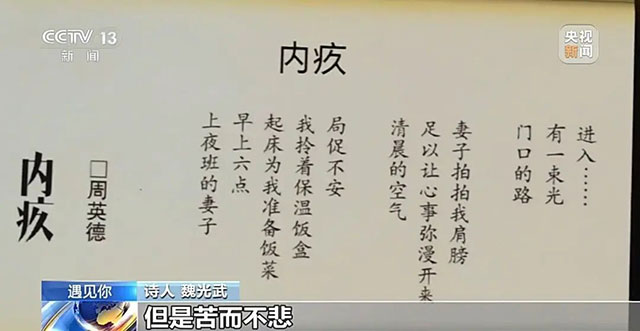 CCTV 13
新闻
央视
新闻
内疚
内疚
□周英德
上夜班的妻子
早上六点
起床为我准备饭菜
我拎着保温饭盒
局促不安
清晨的空气
足以让心事弥漫开来
妻子拍拍我肩膀
门口的路
有一束光
进入……
遇见你
诗人 魏光武
但是苦而不悲